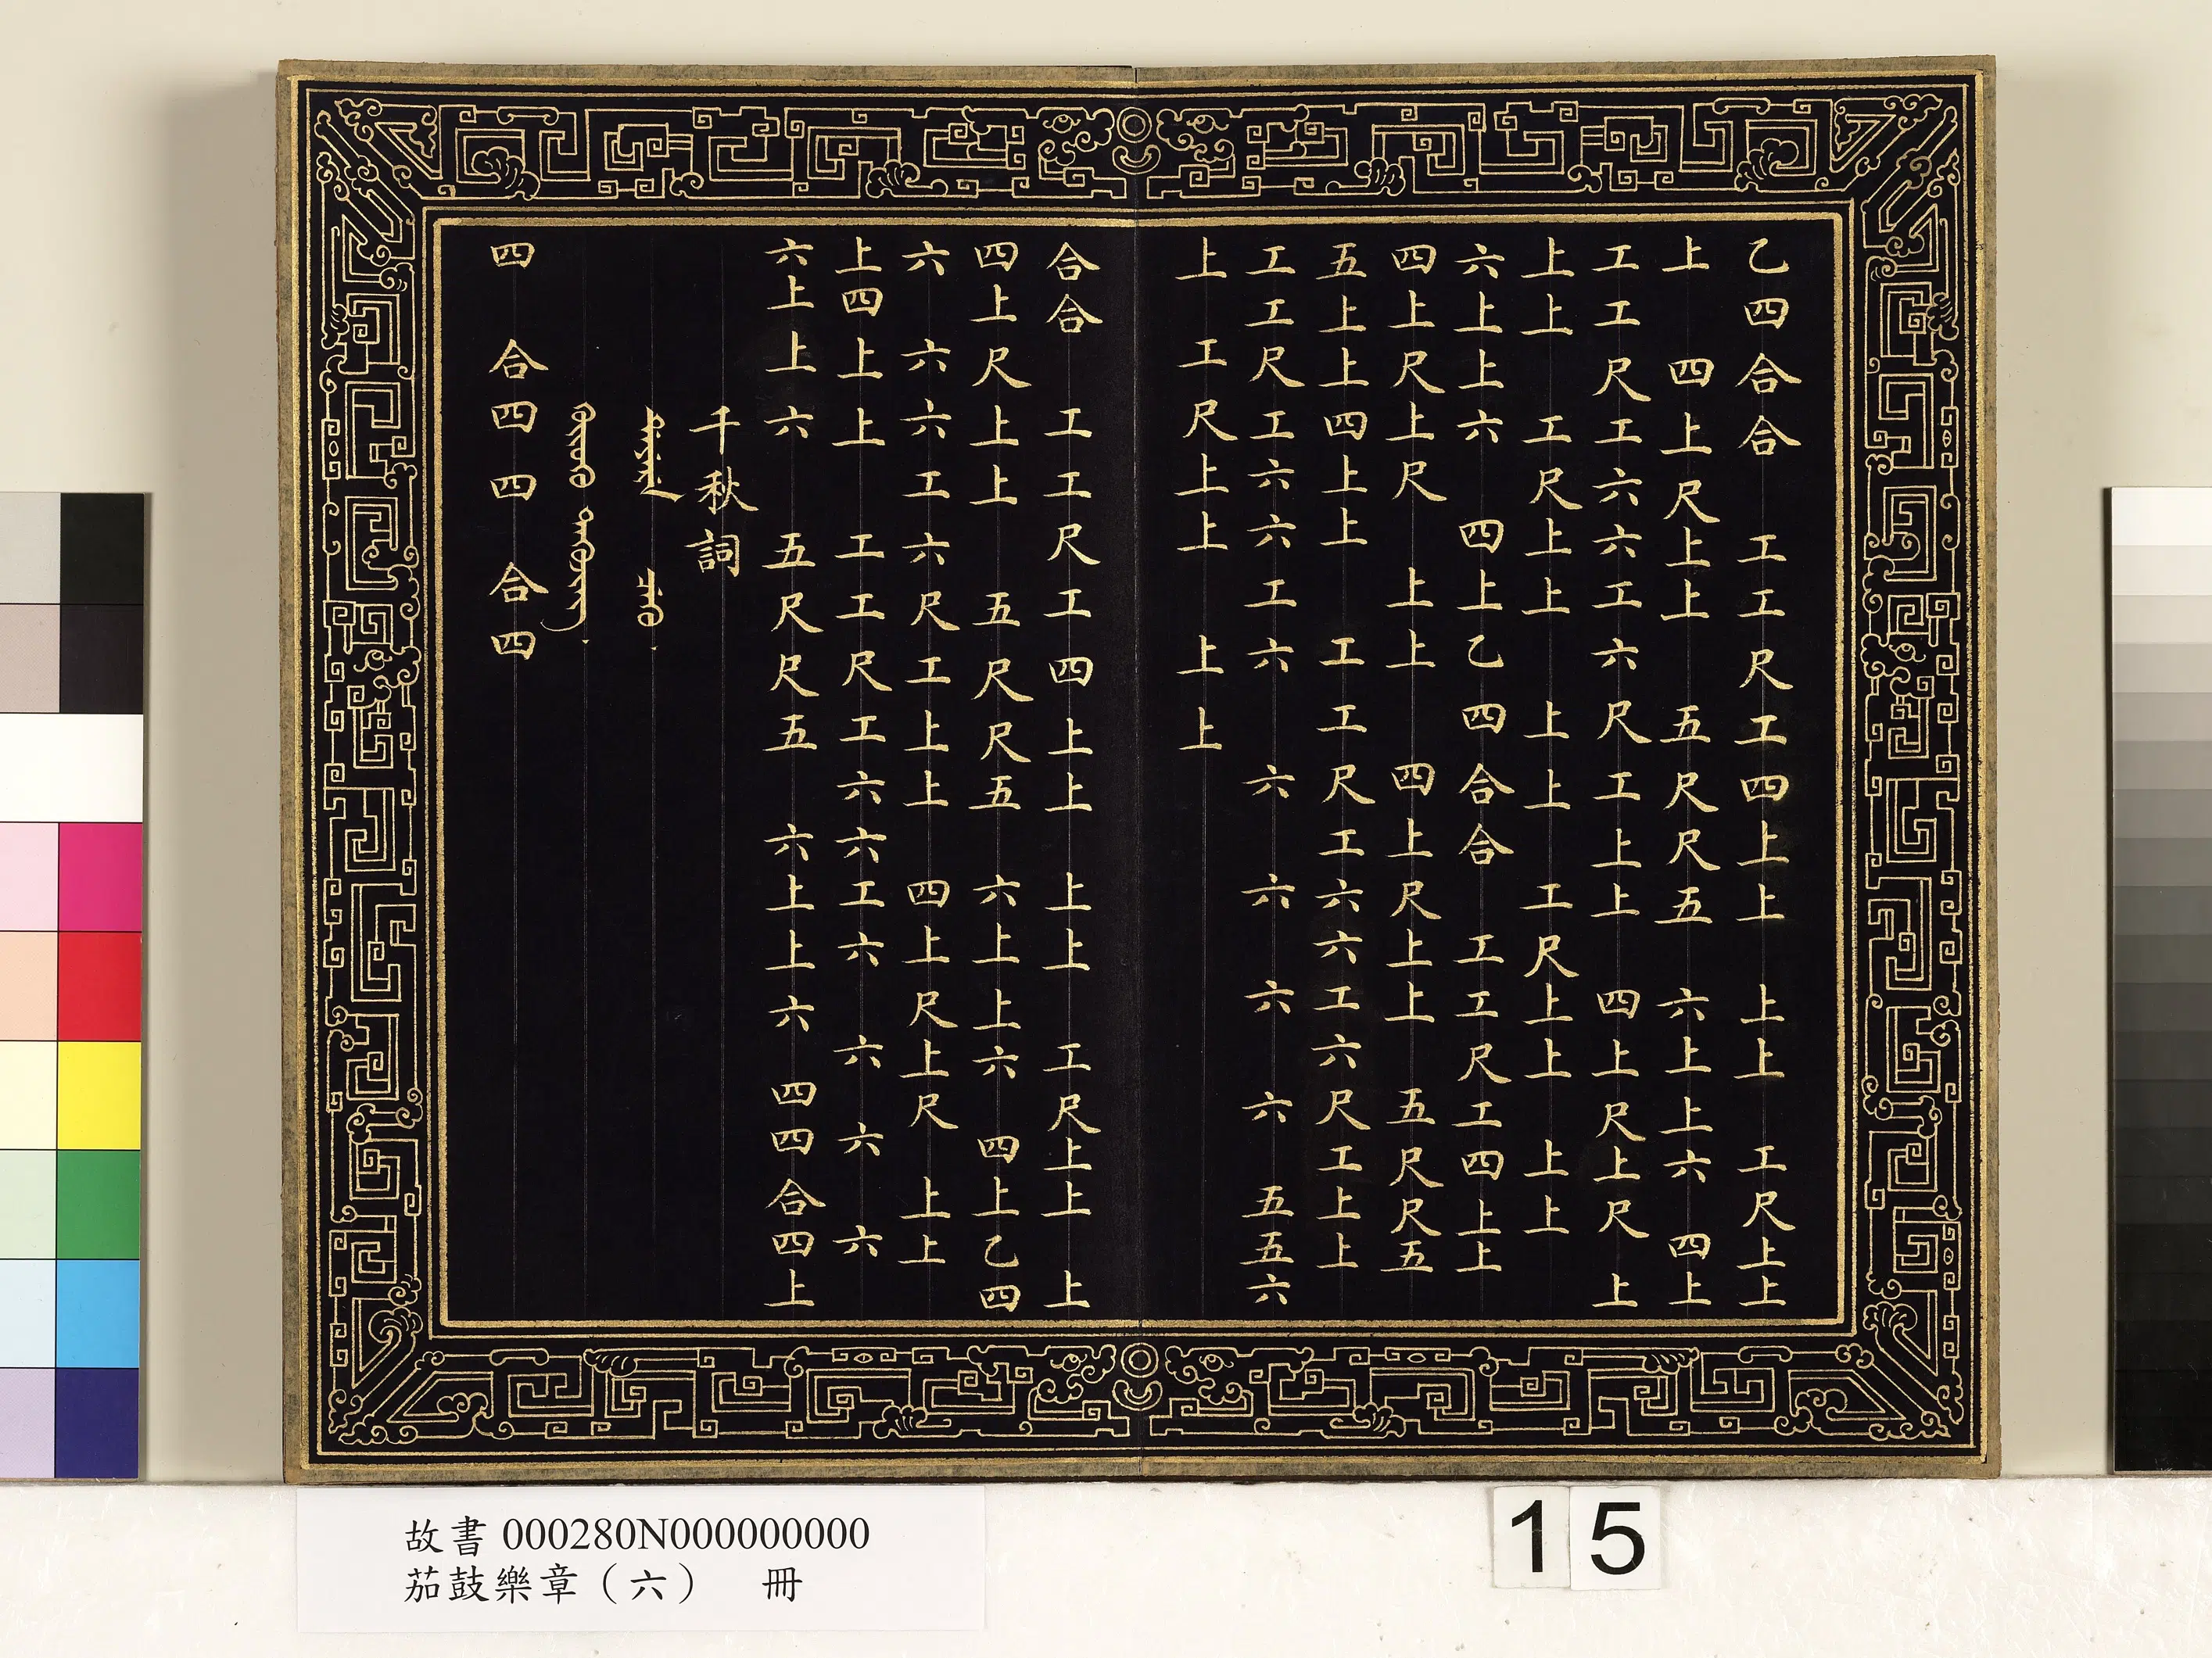 乙四合合 工工尺工四上上 上上 工尺上上
上 四上尺上上 五尺尺五 六上上六 四上
工工尺工六六工六尺工上上 四上尺上尺 上
上上 工尺上上 上上 工尺上上 上上
六上上六 四上乙四合合 工工尺工四上上
四上尺上尺 上上 四上尺上上 五尺尺五
五上上四上上 工工尺工六六工六尺工上上
工工尺工六六工六 六 六 六 六 五五六
上 工尺上上 上上
合合 工工尺工四上上 上上 工尺上上 上
四上尺上上 五尺尺五 六上上六 四上乙四
六 六六工六尺工上上 四上尺上尺 上上
上四上上 工工尺工六六工六 六 六 六
六上上六 五尺尺五 六上上六 四四合四上
千秋詞
四 合四四 合四
15
故書 000280N000000000
茄鼓樂章（六） 冊